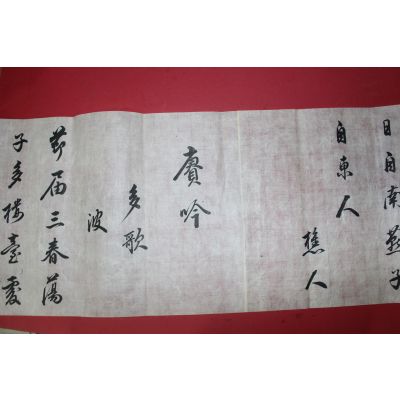 日自南燕子
自東人
樵人
賡吟
多歌
波
節届三春蕩
子多楼臺處